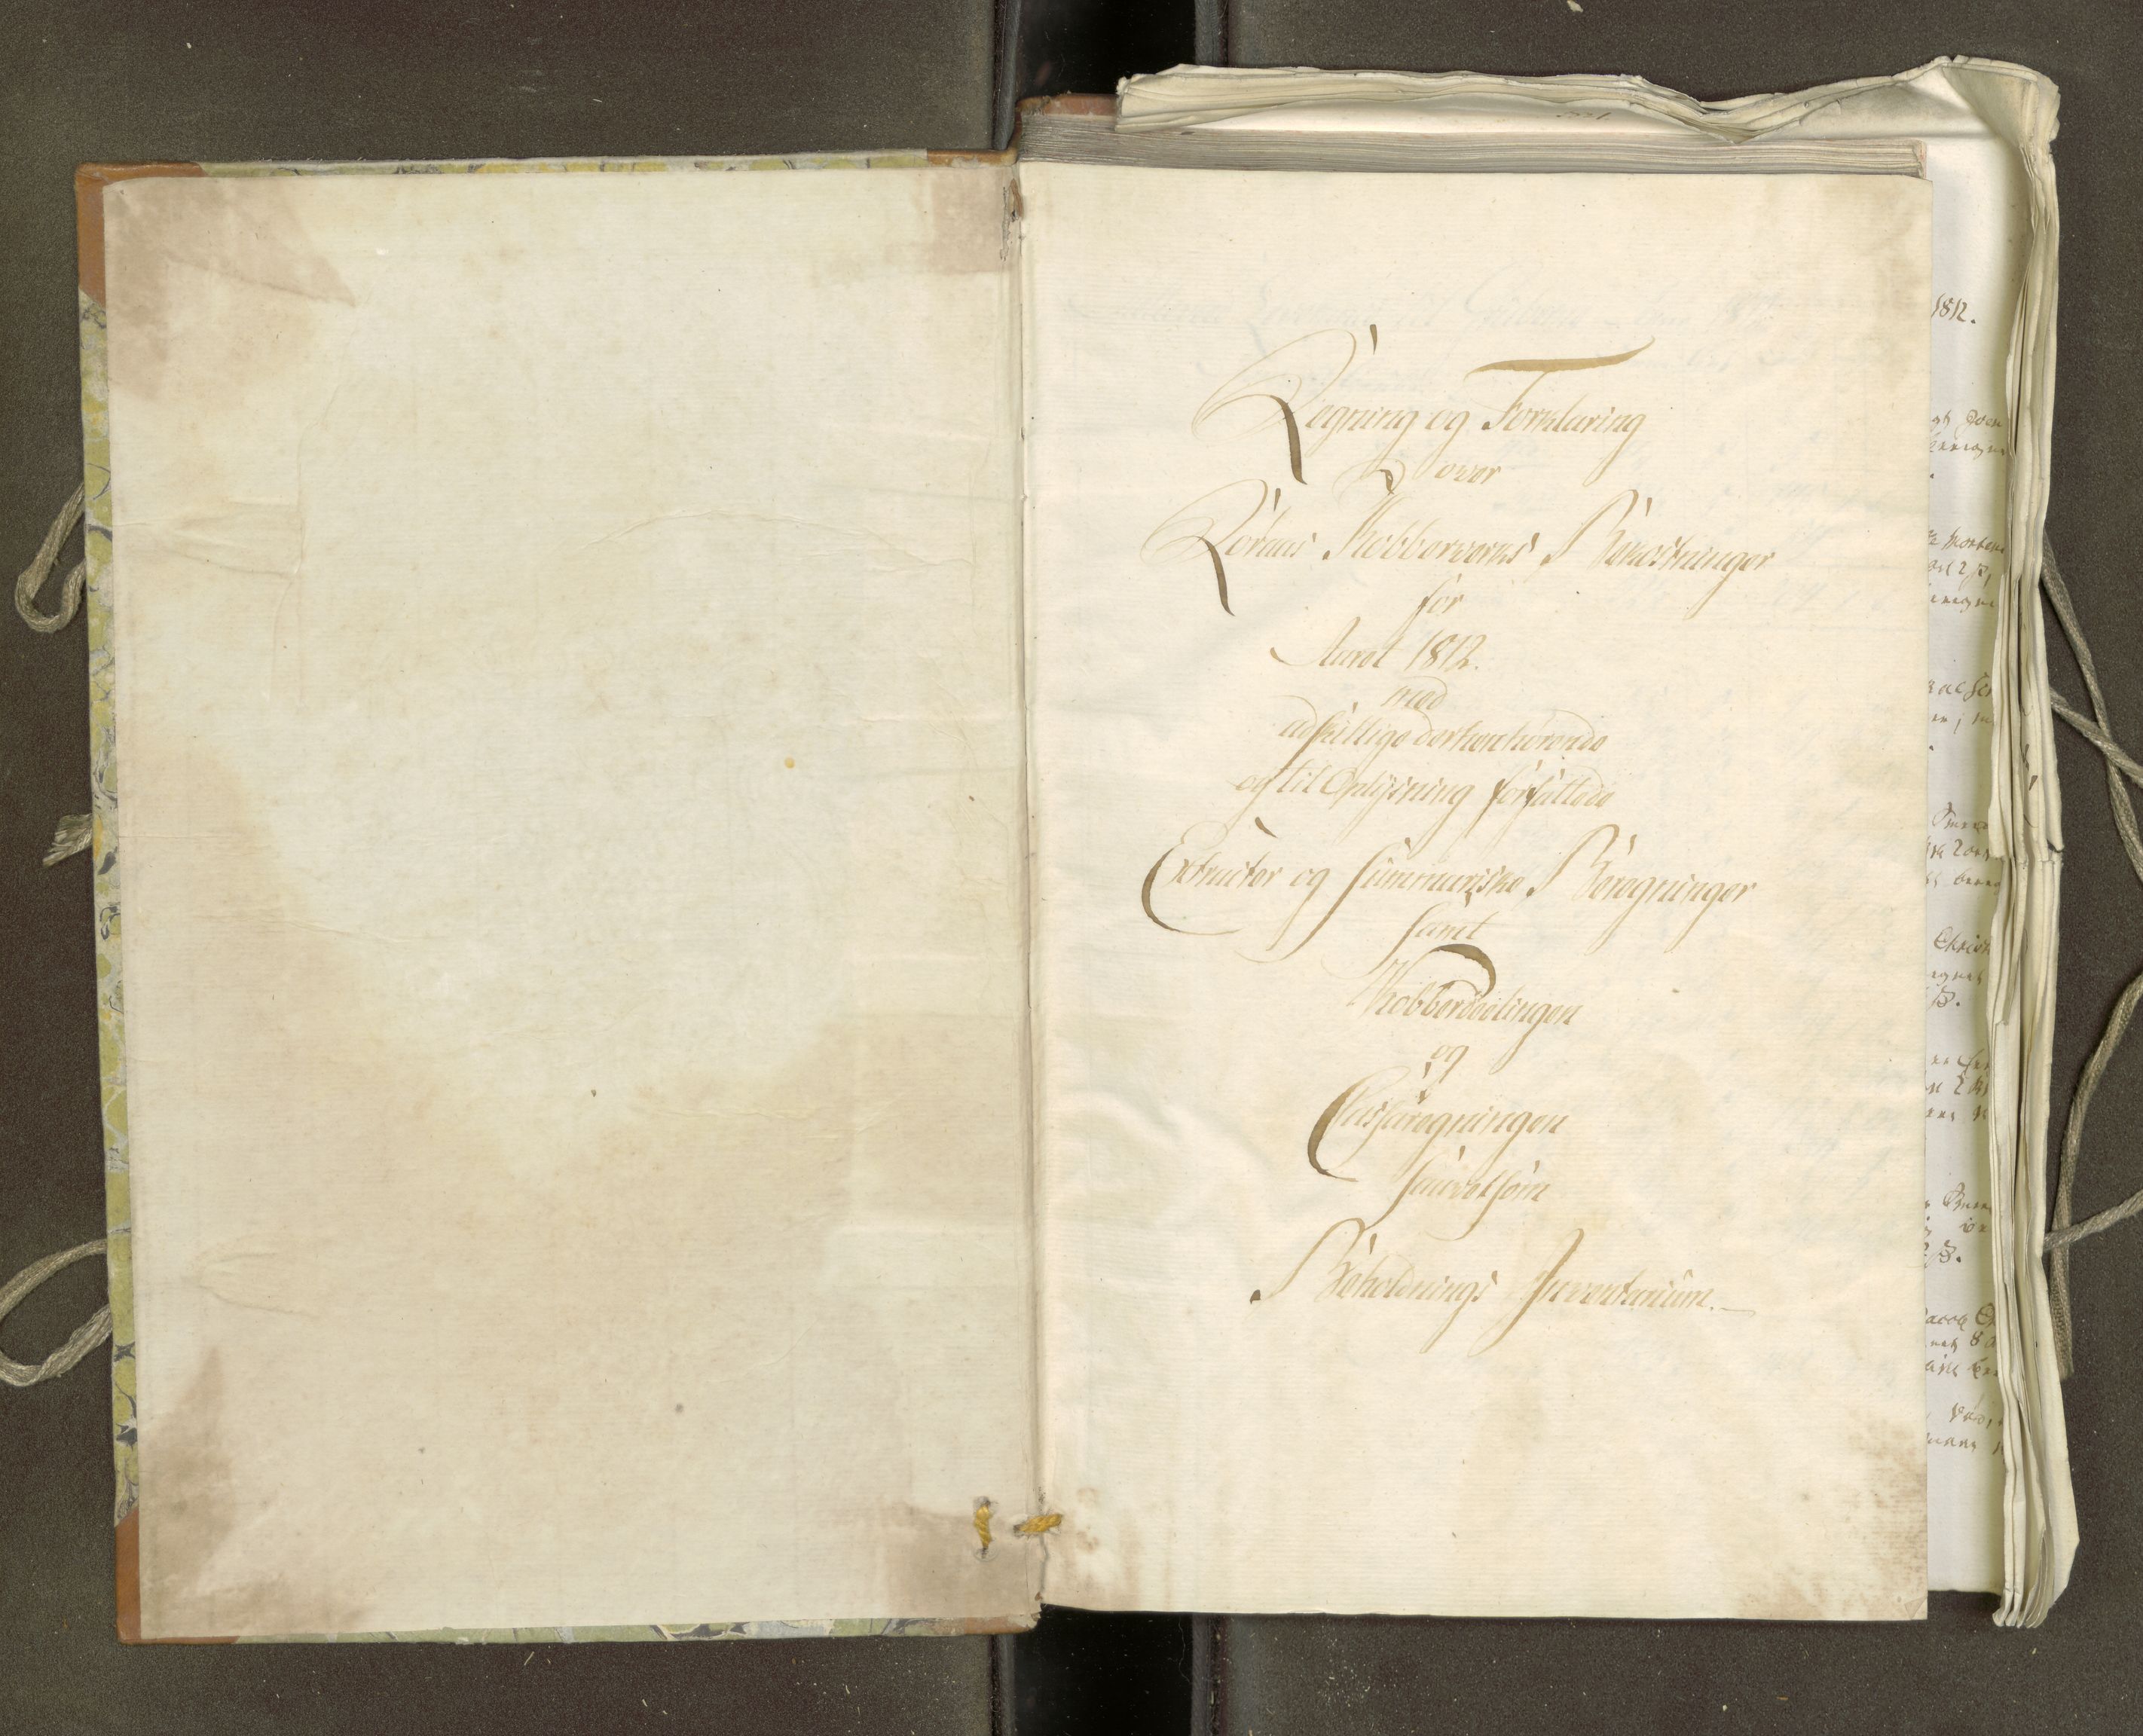 Regning og Forklaring
over
Röraas Kobberverks Bekostninger
for
Aaret 1812.
med
adskillige derhenhörende
og til Oplysning forfattede
Extracter og summariske Beregninger
samt
Kobberdeelingen
og
Cassaregningen
saavelsom
Beholdnings Inventarium.
1812.